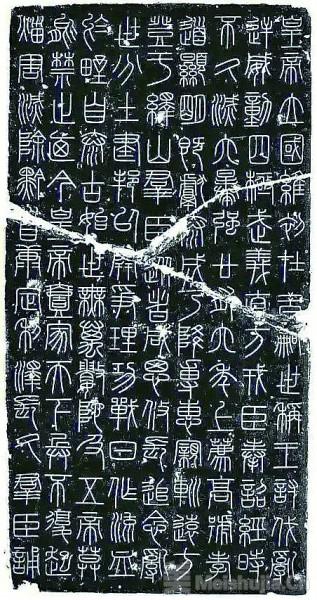 皇帝立國維初在昔嗣世稱王討伐亂
逆威動四極武義直方戎臣奉詔經時
不久滅六暴強廿有六年上薦高號孝
道顯明既獻泰成乃降專惠親巡遠方
登于繹山羣臣從者咸思攸長追念亂
世分土建邦以開爭理功戰日作流血
於野自泰古始世無萬數陀及五帝莫
能禁止迺今皇帝壹家天下兵不復起
災害滅除黔首康定利澤長久羣臣誦
Meishujia.Cn